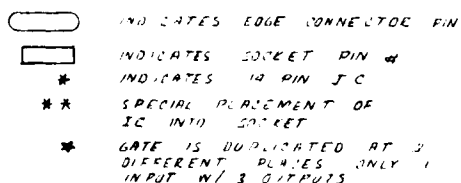 INDICATES EDGE CONNECTOR PIN
INDICATES SOCKET PIN #
* INDICATES 14 PIN IC
** SPECIAL PLACEMENT OF
IC INTO SOCKET
* GATE IS DUPLICATED AT 3
DIFFERENT PLACES ONLY 1
INPUT W/ 3 OUTPUTS